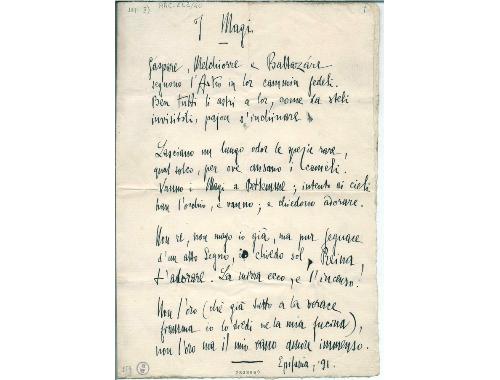 I Magi.
Gaspare, Melchiorre e Baltazzáre
seguono l'Astro in lor cammin fedeli.
Ben tutti li astri a lor, come da steli
invisibili, pajon s'inchinare.
Lasciano un lungo odor le spezie rare,
qual solco, per ove ansano i cameli.
Vanno i Magi a Betlemme; intento ai cieli
han l'occhio, e vanno; e chiedono adorare.
Non re, non mago io già, ma pur seguace
d'un alto Segno, io chiedo sol, Reina!
t'adorare. La mirra ecco, e l'incenso!
Non l'oro (ché già tutto a la verace
fiamma io lo diedi ne la mia fucina),
non l'oro ma il mio vano amore immenso.
Epifania, '91.